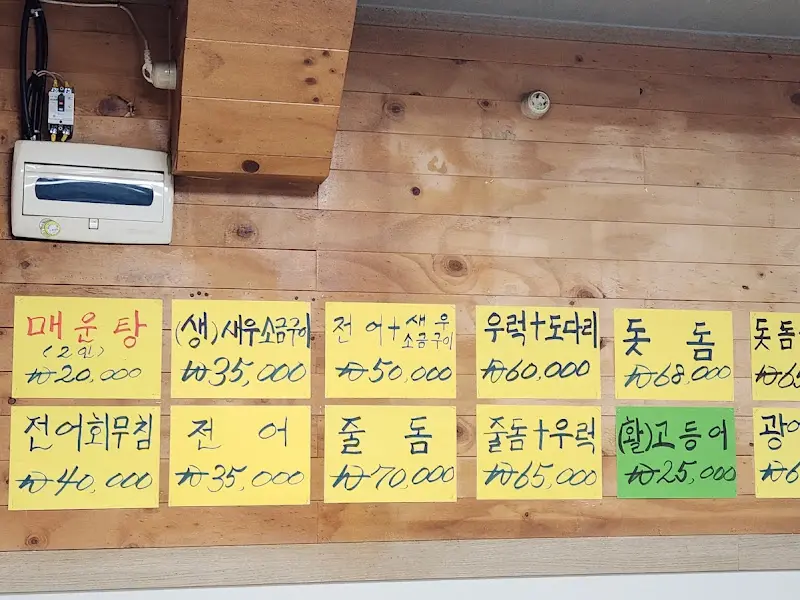 매운탕
(2인)
₩20,000
(생)새우소금구이
₩35,000
전어+새우
소금구이
₩50,000
우럭+도다리
₩60,000
돗돔
₩68,000
돗돔
₩65
전어회무침
₩40,000
전어
₩35,000
줄돔
₩70,000
줄돔+우럭
₩65,000
(활)고등어
₩25,000
광어
₩6